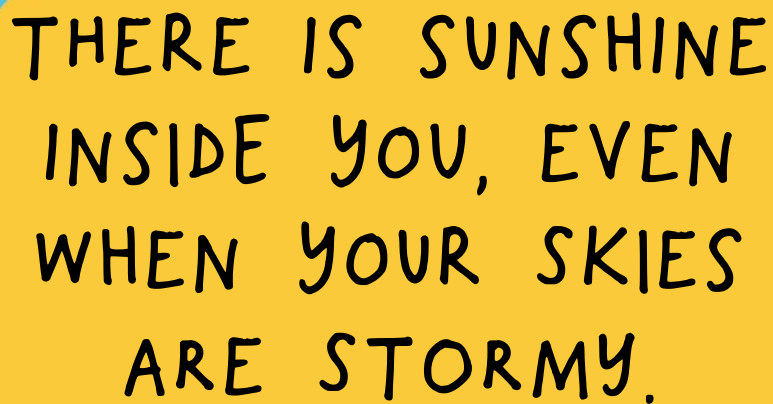 THERE IS SUNSHINE
INSIDE YOU, EVEN
WHEN YOUR SKIES
ARE STORMY.